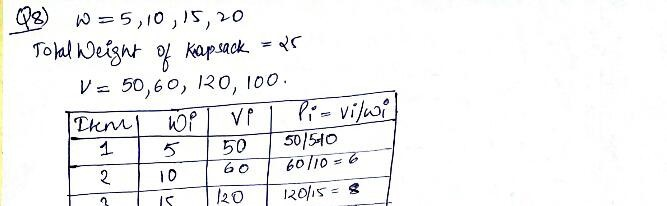 Q8) W = 5, 10, 15, 20
Total Weight of Kapsack = 25
V = 50, 60, 120, 100.
Item Wi Vi Pi = Vi/wi
1 5 50 50/5=10
2 10 60 60/10 = 6
3 15 120 120/15 = 8